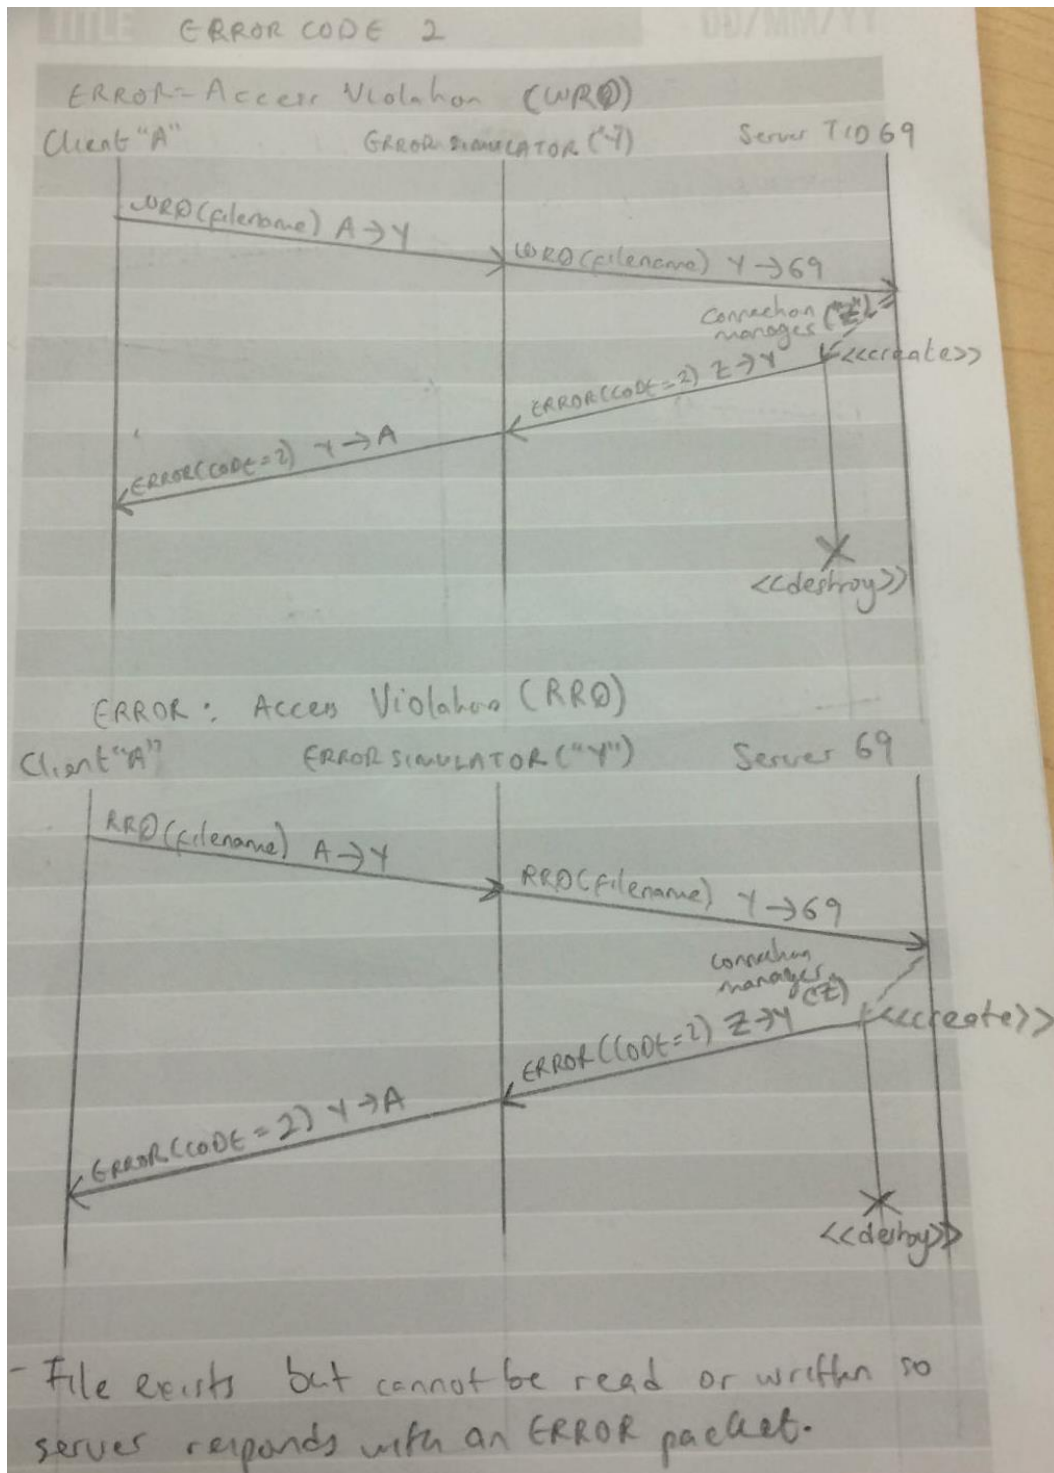 TITLE ERROR CODE 2 YY/MM/DD
ERROR - Access Violation (WRQ)
Client "A" ERROR SIMULATOR ("Y") Server TID 69
WRQ(filename) A→Y
WRQ(filename) Y→69
connection
manager ("Z")
<<create>>
ERROR(CODE=2) Z→Y
ERROR(CODE=2) Y→A
<<destroy>>
ERROR: Access Violation (RRQ)
Client "A" ERROR SIMULATOR ("Y") Server 69
RRQ(filename) A→Y
RRQ(filename) Y→69
connection
manager
(Z)
<<create>>
ERROR(CODE=2) Z→Y
ERROR(CODE=2) Y→A
<<destroy>>
- File exists but cannot be read or written so
server responds with an ERROR packet.